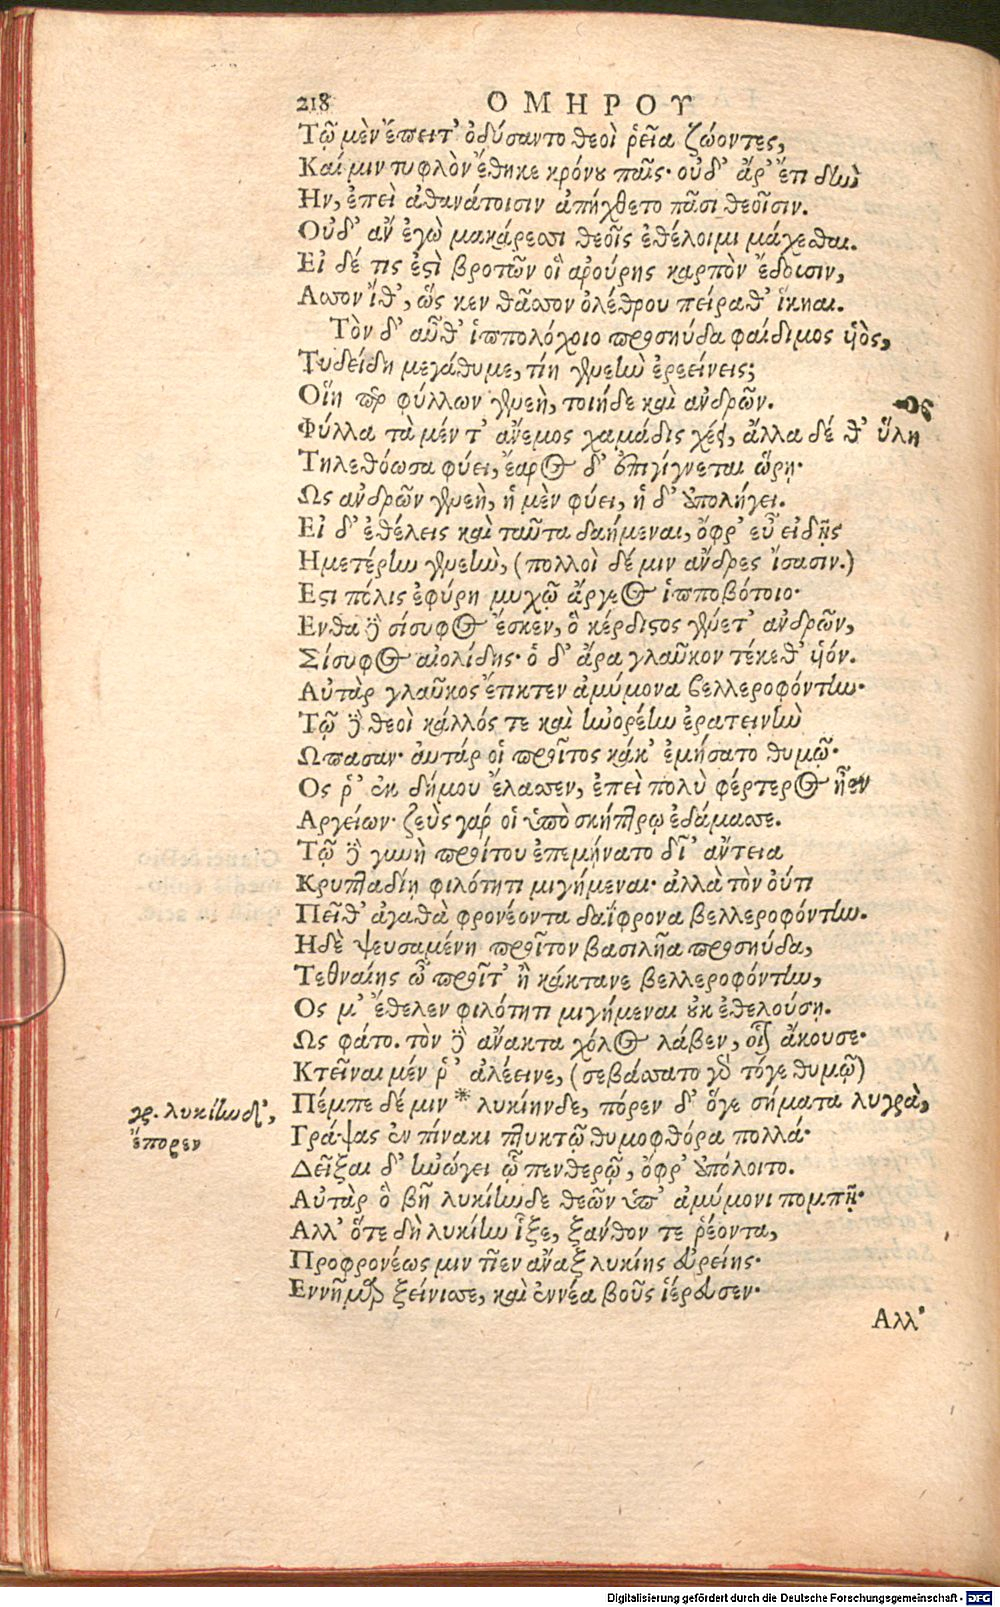 218 ΟΜΗΡΟΥ
Τῷ μὲν ἔπειτ' ὀδύσαντο θεοὶ ῥεῖα ζώοντες,
Καί μιν τυφλὸν ἔθηκε κρόνου παῖς· οὐδ' ἂρ' ἔτι δὴν
Ην, ἐπεὶ ἀθανάτοισιν ἀπήχθετο πᾶσι θεοῖσιν.
Οὐδ' ἂν ἐγὼ μακάρεσσι θεοῖς ἐθέλοιμι μάχεσθαι.
Εἰ δέ τις ἐσὶ βροτῶν οἳ ἀρούρης καρπὸν ἔδουσιν,
Ασσον ἴθ', ὥς κεν θᾶσσον ὀλέθρου πείραθ' ἵκηαι.
Τὸν δ' αὖθ' ἱππολόχοιο προσηύδα φαίδιμος υἱὸς,
Τυδείδη μεγάθυμε, τίη γενεὴν ἐρεείνεις;
Οἵη περ φύλλων γενεὴ, τοιήδε καὶ ἀνδρῶν.
Φύλλα τὰ μέν τ' ἄνεμος χαμάδις χέει, ἄλλα δέ θ' ὕλη
Τηλεθόωσα φύει, ἔαρος δ' ἐπιγίγνεται ὥρη·
Ως ἀνδρῶν γενεὴ, ἡ μὲν φύει, ἡ δ' ὑπολήγει.
Εἰ δ' ἐθέλεις καὶ ταῦτα δαήμεναι, ὄφρ' εὖ εἰδῇς
Ημετέρην γενεὴν, (πολλοὶ δέ μιν ἄνδρες ἴσασιν.)
Εστι πόλις ἐφύρη μυχῷ ἄργεος ἱπποβότοιο·
Ενθα δὲ σίσυφος ἔσκεν, ὃ κέρδιστος γένετ' ἀνδρῶν,
Σίσυφος αἰολίδης· ὁ δ' ἄρα γλαῦκον τέκεθ' υἱόν.
Αὐτὰρ γλαῦκος ἔτικτεν ἀμύμονα βελλεροφόντην·
Τῷ δὲ θεοὶ κάλλός τε καὶ ἠνορέην ἐρατεινὴν
Ωπασαν· ἀυτάρ οἱ προῖτος κάκ' ἐμήσατο θυμῷ·
Ος ῥ' ἐκ δήμου ἔλασσεν, ἐπεὶ πολὺ φέρτερος ἦεν
Αργείων· ζεὺς γάρ οἱ ὑπὸ σκήπτρῳ ἐδάμασσε.
Τῷ δὲ γυνὴ προίτου ἐπεμήνατο δῖ' ἄντεια
Κρυπταδίῃ φιλότητι μιγήμεναι· ἀλλὰ τὸν οὔτι
Πεῖθ' ἀγαθὰ φρονέοντα δαΐφρονα βελλεροφόντην.
Ηδὲ ψευσαμένη προῖτον βασιλῆα προσηύδα,
Τεθναίης ὦ προῖτ' ἢ κάκτανε βελλεροφόντην,
Ος μ' ἔθελεν φιλότητι μιγήμεναι οὐκ ἐθελούσῃ.
Ως φάτο. τὸν δὲ ἄνακτα χόλος λάβεν, οἷον ἄκουσε·
Κτεῖναι μέν ῥ' ἀλέεινε, (σεβάσσατο γὰρ τόγε θυμῷ)
Πέμπε δέ μιν * λυκίηνδε, πόρεν δ' ὅγε σήματα λυγρὰ,
γρ. λυκίην δ',
ἔπορεν
Γράψας ἐν πίνακι πτυκτῷ θυμοφθόρα πολλά·
Δεῖξαι δ' ἠνώγει ᾧ πενθερῷ, ὄφρ' ὑπόλοιτο.
Αὐτὰρ ὃ βῆ λυκίηνδε θεῶν ὑπ' ἀμύμονι πομπῇ·
Αλλ' ὅτε δὴ λυκίην ἷξε, ξάνθον τε ῥέοντα,
Προφρονέως μιν τῖεν ἄναξ λυκίης εὐρείης·
Εννῆμαρ ξείνισσε, καὶ ἐννέα βοῦς ἱέρευσεν·
Αλλ'
Digitalisierung gefördert durch die Deutsche Forschungsgemeinschaft - DFG